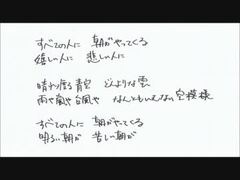 すべての人に 朝がやってくる
嬉しい人に 悲しい人に
晴れ渡る青空 どんような雲
雨や嵐や台風や なんともいえない空模様
すべての人に 朝がやってくる
明るい朝が 苦しい朝が